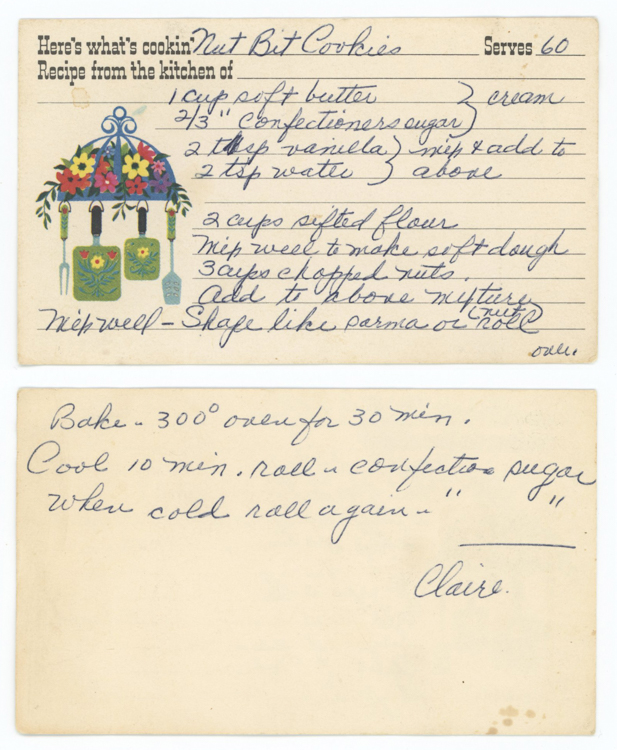 Here's what's cookin' Nut Bit Cookies Serves 60
Recipe from the kitchen of
1 cup soft butter } cream
2/3 " Confectioners sugar }
2 tsp vanilla } mix & add to
2 tsp water } above
2 cups sifted flour
Mix well to make soft dough
3 cups chopped nuts.
Add to above mixture
Mix well - Shape like parma or (nut) roll
over.
Bake - 300° oven for 30 min.
Cool 10 min. roll - confection sugar
When cold roll again - " "
Claire.